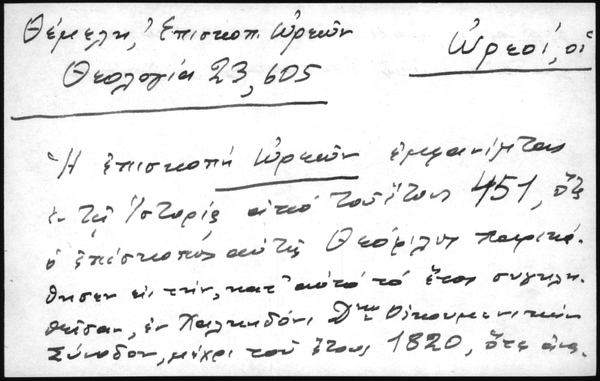 Θέμελη, Ἐπισκοπ. Ὠρεῶν
Ὠρεοί, οἱ
Θεολογία 23, 605
Ἡ ἐπισκοπή Ὠρεῶν ἐμφανίζεται
ἐν τῇ Ἱστορίᾳ ἀπό τοῦ ἔτους 451, ὅτε
ὁ ἐπίσκοπος αὐτῆς Θεόφιλος παρεκά-
θησεν εἰς τήν, κατ' αὐτό τό ἔτος συγκλη-
θεῖσαν, ἐν Χαλκηδόνι Δην Οἰκουμενικήν
Σύνοδον, μέχρι τοῦ ἔτους 1820, ὅτε